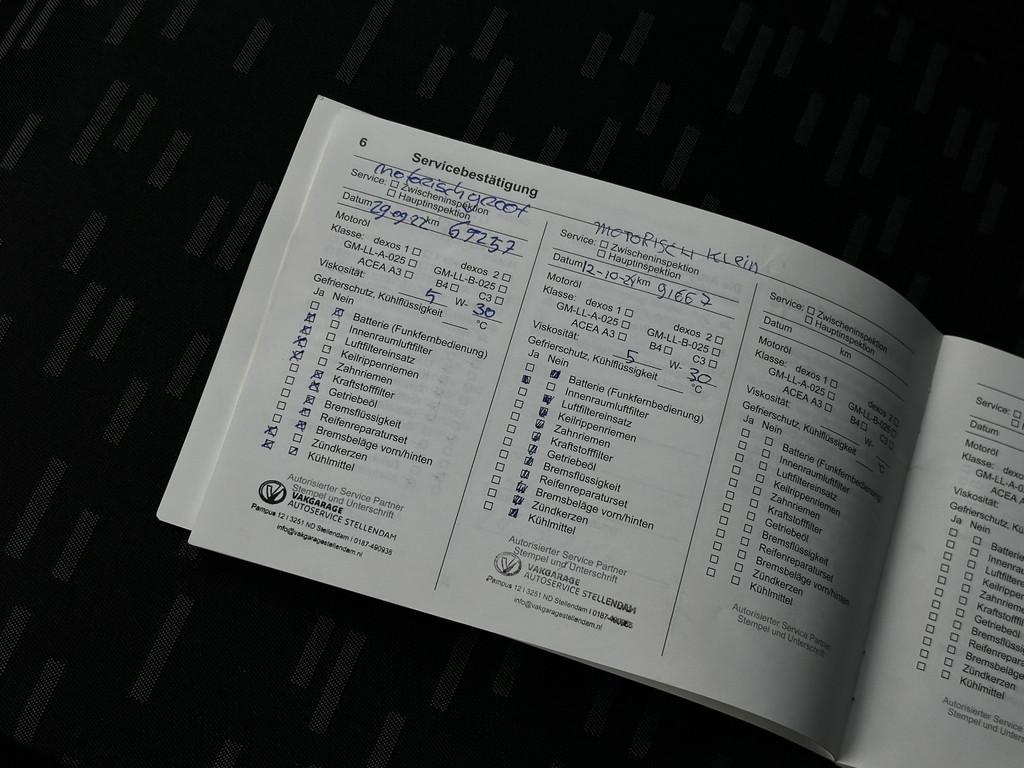 6 Servicebestätigung
Motorisch groot
Service: ☐ Zwischeninspektion
☐ Hauptinspektion
Datum 29.09.22 km 69257
Motoröl
Klasse: dexos 1 ☐ dexos 2 ☐
GM-LL-A-025 ☐ GM-LL-B-025 ☐
ACEA A3 ☐ B4 ☐ C3 ☐
Viskosität: 5 W- 30
Gefrierschutz, Kühlflüssigkeit °C
Ja Nein
Batterie (Funkfernbedienung)
Innenraumluftfilter
Luftfiltereinsatz
Keilrippenriemen
Zahnriemen
Kraftstofffilter
Getriebeöl
Bremsflüssigkeit
Reifenreparaturset
Bremsbeläge vorn/hinten
Zündkerzen
Kühlmittel
Autorisierter Service Partner
Stempel und Unterschrift
VAKGARAGE
AUTOSERVICE STELLENDAM
Pampus 12 I 3251 ND Stellendam I 0187-490938
info@vakgaragestellendam.nl
MOTORISCH KLEIN
Service: ☐ Zwischeninspektion
☐ Hauptinspektion
Datum 12-10-24 km 91667
Motoröl
Klasse: dexos 1 ☐ dexos 2 ☐
GM-LL-A-025 ☐ GM-LL-B-025 ☐
ACEA A3 ☐ B4 ☐ C3 ☐
Viskosität: 5 W- 30
Gefrierschutz, Kühlflüssigkeit °C
Ja Nein
Batterie (Funkfernbedienung)
Innenraumluftfilter
Luftfiltereinsatz
Keilrippenriemen
Zahnriemen
Kraftstofffilter
Getriebeöl
Bremsflüssigkeit
Reifenreparaturset
Bremsbeläge vorn/hinten
Zündkerzen
Kühlmittel
Autorisierter Service Partner
Stempel und Unterschrift
VAKGARAGE
AUTOSERVICE STELLENDAM
Pampus 12 I 3251 ND Stellendam I
info@vakgaragestellendam.nl
Service: ☐ Zwischeninspektion
☐ Hauptinspektion
Datum km
Motoröl
Klasse: dexos 1 ☐ dexos 2 ☐
GM-LL-A-025 ☐ GM-LL-B-025 ☐
ACEA A3 ☐ B4 ☐ C3 ☐
Viskosität: W-
Gefrierschutz, Kühlflüssigkeit °C
Ja Nein
Batterie (Funkfernbedienung)
Innenraumluftfilter
Luftfiltereinsatz
Keilrippenriemen
Zahnriemen
Kraftstofffilter
Getriebeöl
Bremsflüssigkeit
Reifenreparaturset
Bremsbeläge vorn/hinten
Zündkerzen
Kühlmittel
Autorisierter Service Partner
Stempel und Unterschrift
Service:
Datum
Motoröl
Klasse: dexos
GM-LL-A-0
ACEA
Viskosität:
Gefrierschutz, K
Ja Nein
Batterie
Innenra
Luftfilte
Keilripp
Zahnrie
Kraftstofffi
Getriebeöl
Bremsflüssig
Reifenreparat
Bremsbeläge
Zündkerzen
Kühlmittel
Autorisierter Serv
Stempel und Unters